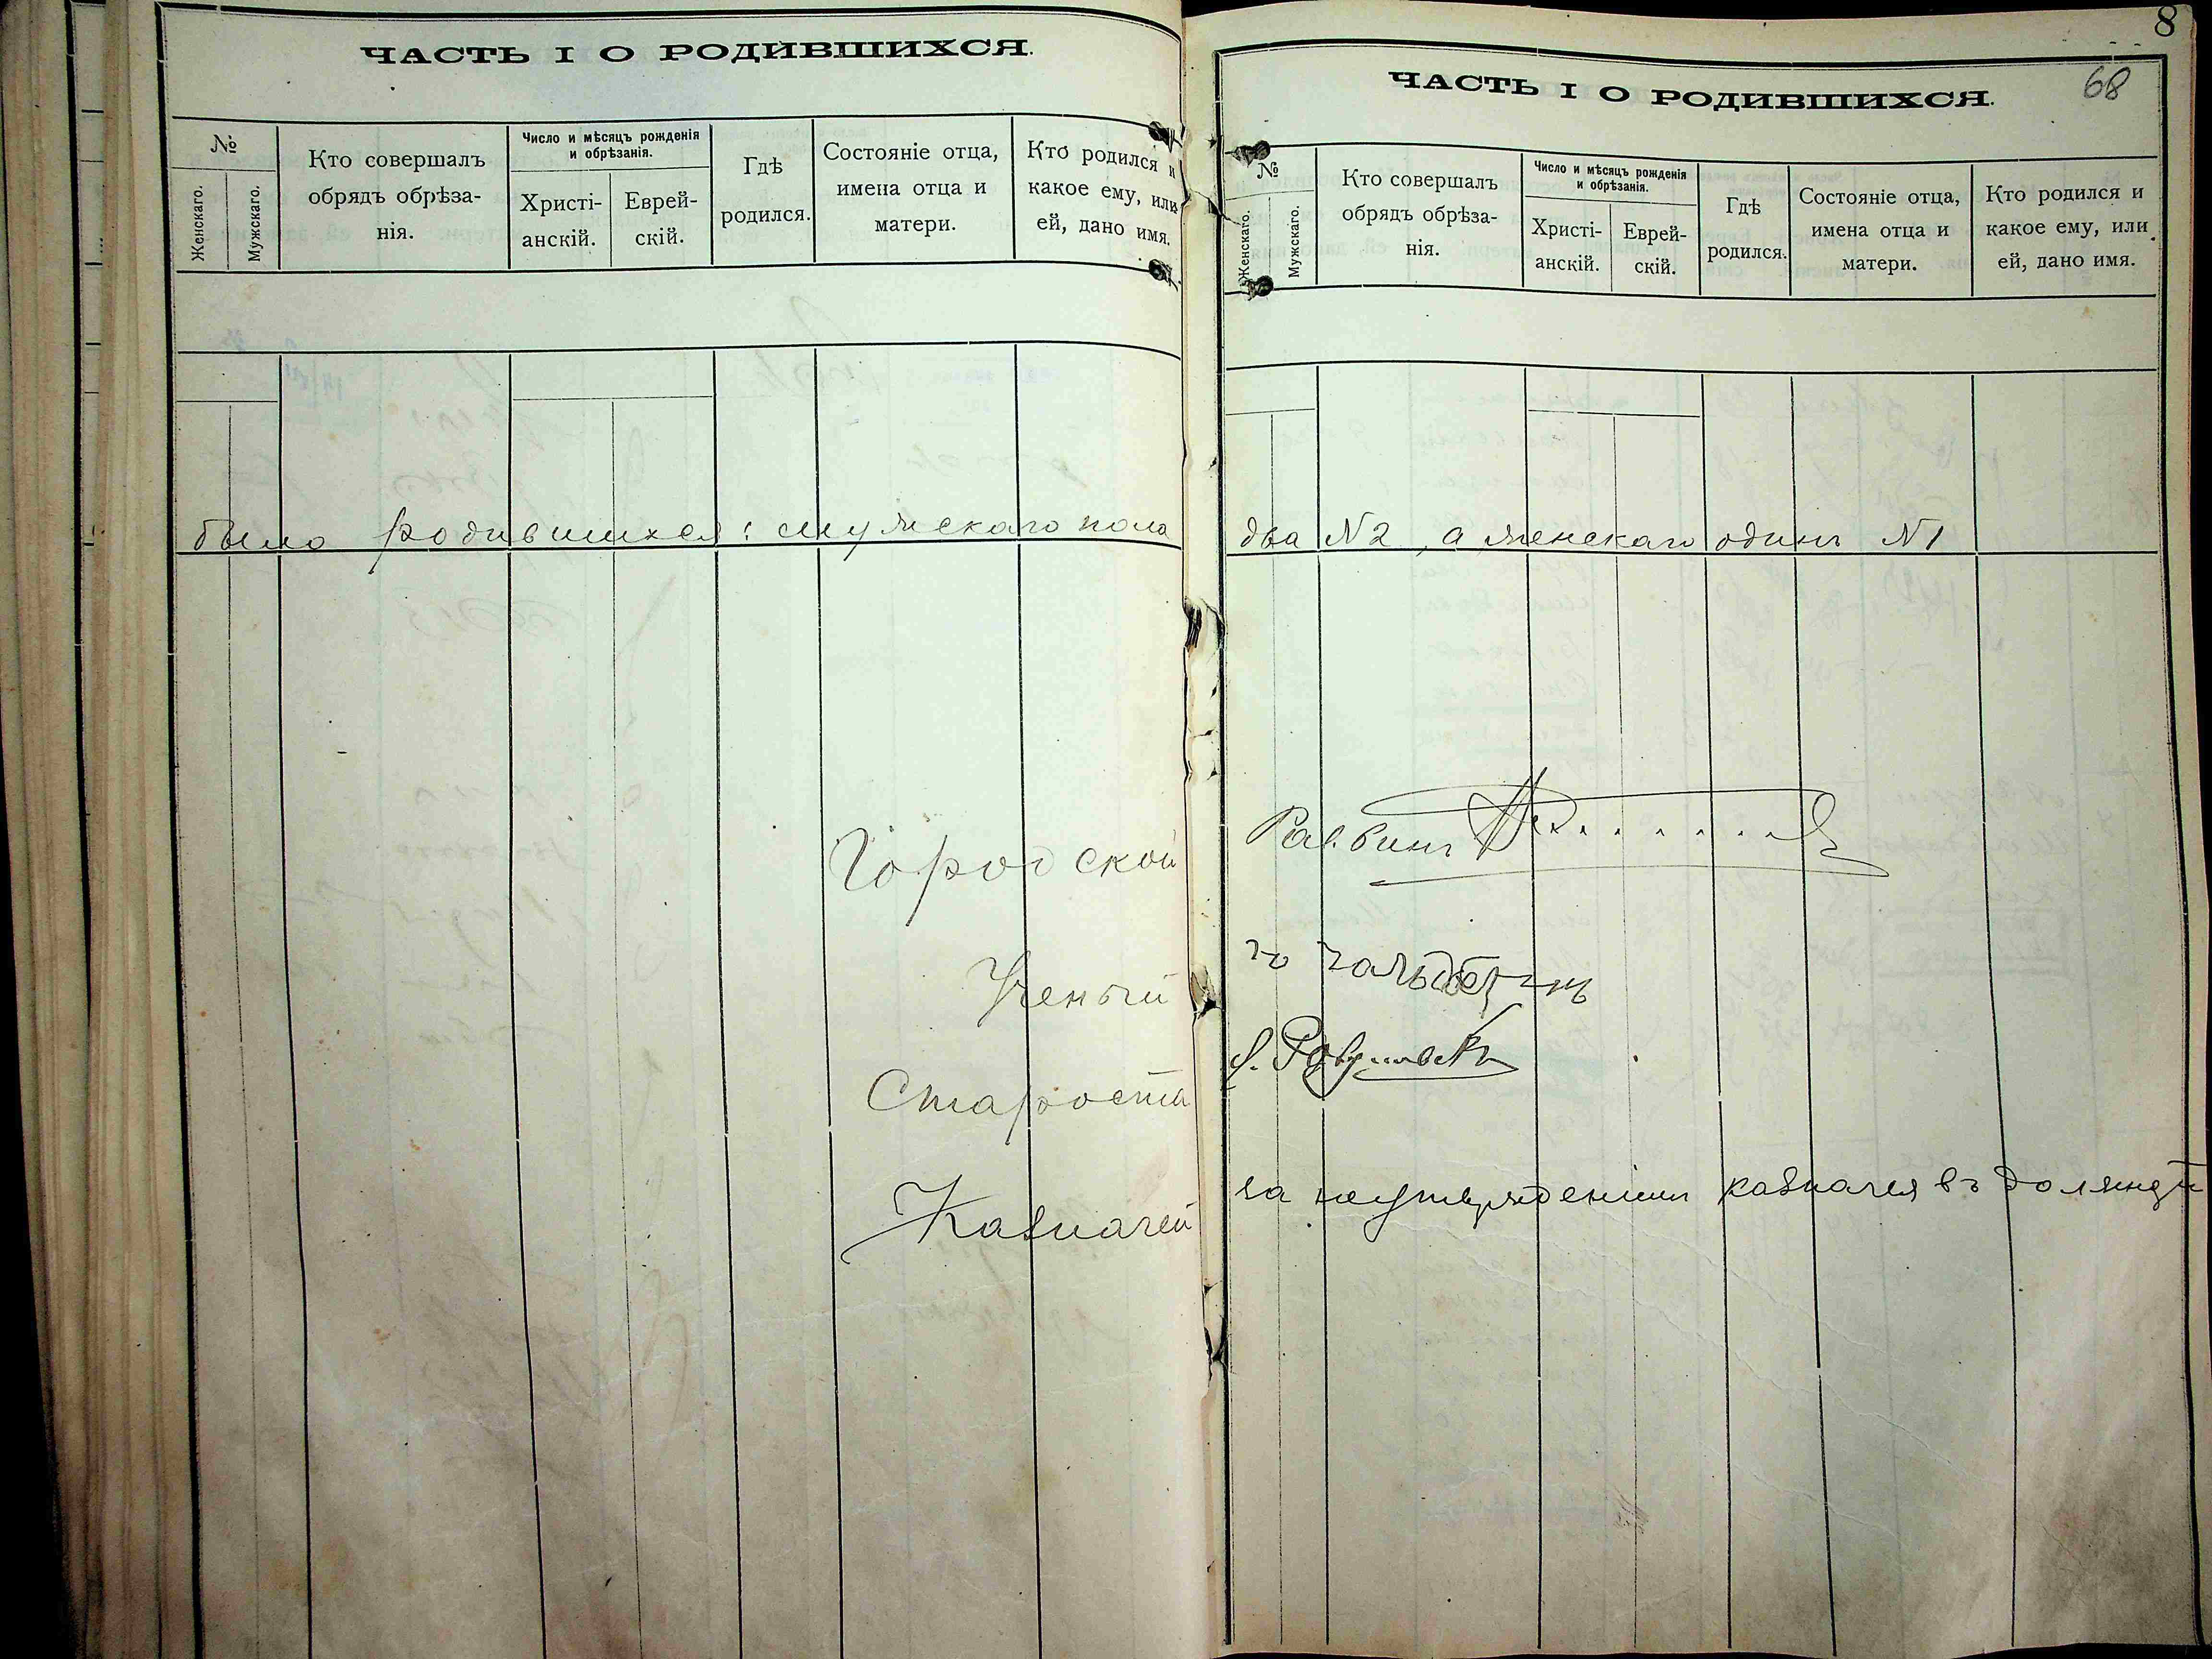 ЧАСТЬ I О РОДИВШИХСЯ.
№
Женскаго.
Мужскаго.
Кто совершалъ
обрядъ обрѣза-
нія.
Число и мѣсяцъ рожденія
и обрѣзанія.
Христі-
анскій.
Еврей-
скій.
Гдѣ
родился.
Состояніе отца,
имена отца и
матери.
Кто родился и
какое ему, или
ей, дано имя.
было родившихся: мужскаго пола
Городской
Ученый
Староста
Казначей
8
68
ЧАСТЬ I О РОДИВШИХСЯ.
№
Женскаго.
Мужскаго.
Кто совершалъ
обрядъ обрѣза-
нія.
Число и мѣсяцъ рожденія
и обрѣзанія.
Христі-
анскій.
Еврей-
скій.
Гдѣ
родился.
Состояніе отца,
имена отца и
матери.
Кто родился и
какое ему, или
ей, дано имя.
два №2, а женскаго одинъ №1
Раввинъ
за неутвержденіемъ казначея въ должности